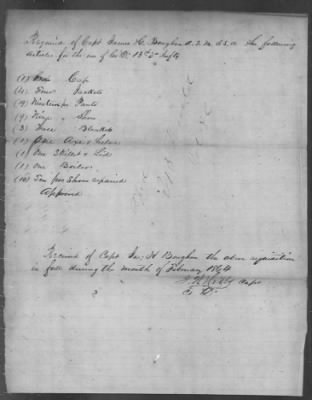 Required of Capt James H. Boughan A. Q. M. C.S.A. the following
articles for the use of Co "D" 13th Infty
(1) One Cap
(4) Four Jackets
(9) Nine pr Pants
(9) Nine " Shoes
(3) Three Blankets
(1) One Axe & helve
(1) One Skillet & Lid
(1) One Boiler
(10) Ten pr Shoes repaired
Approved
Received of Capt Jas, H Boughan the above requisition
in full during the month of February 1864
Capt
Co D.